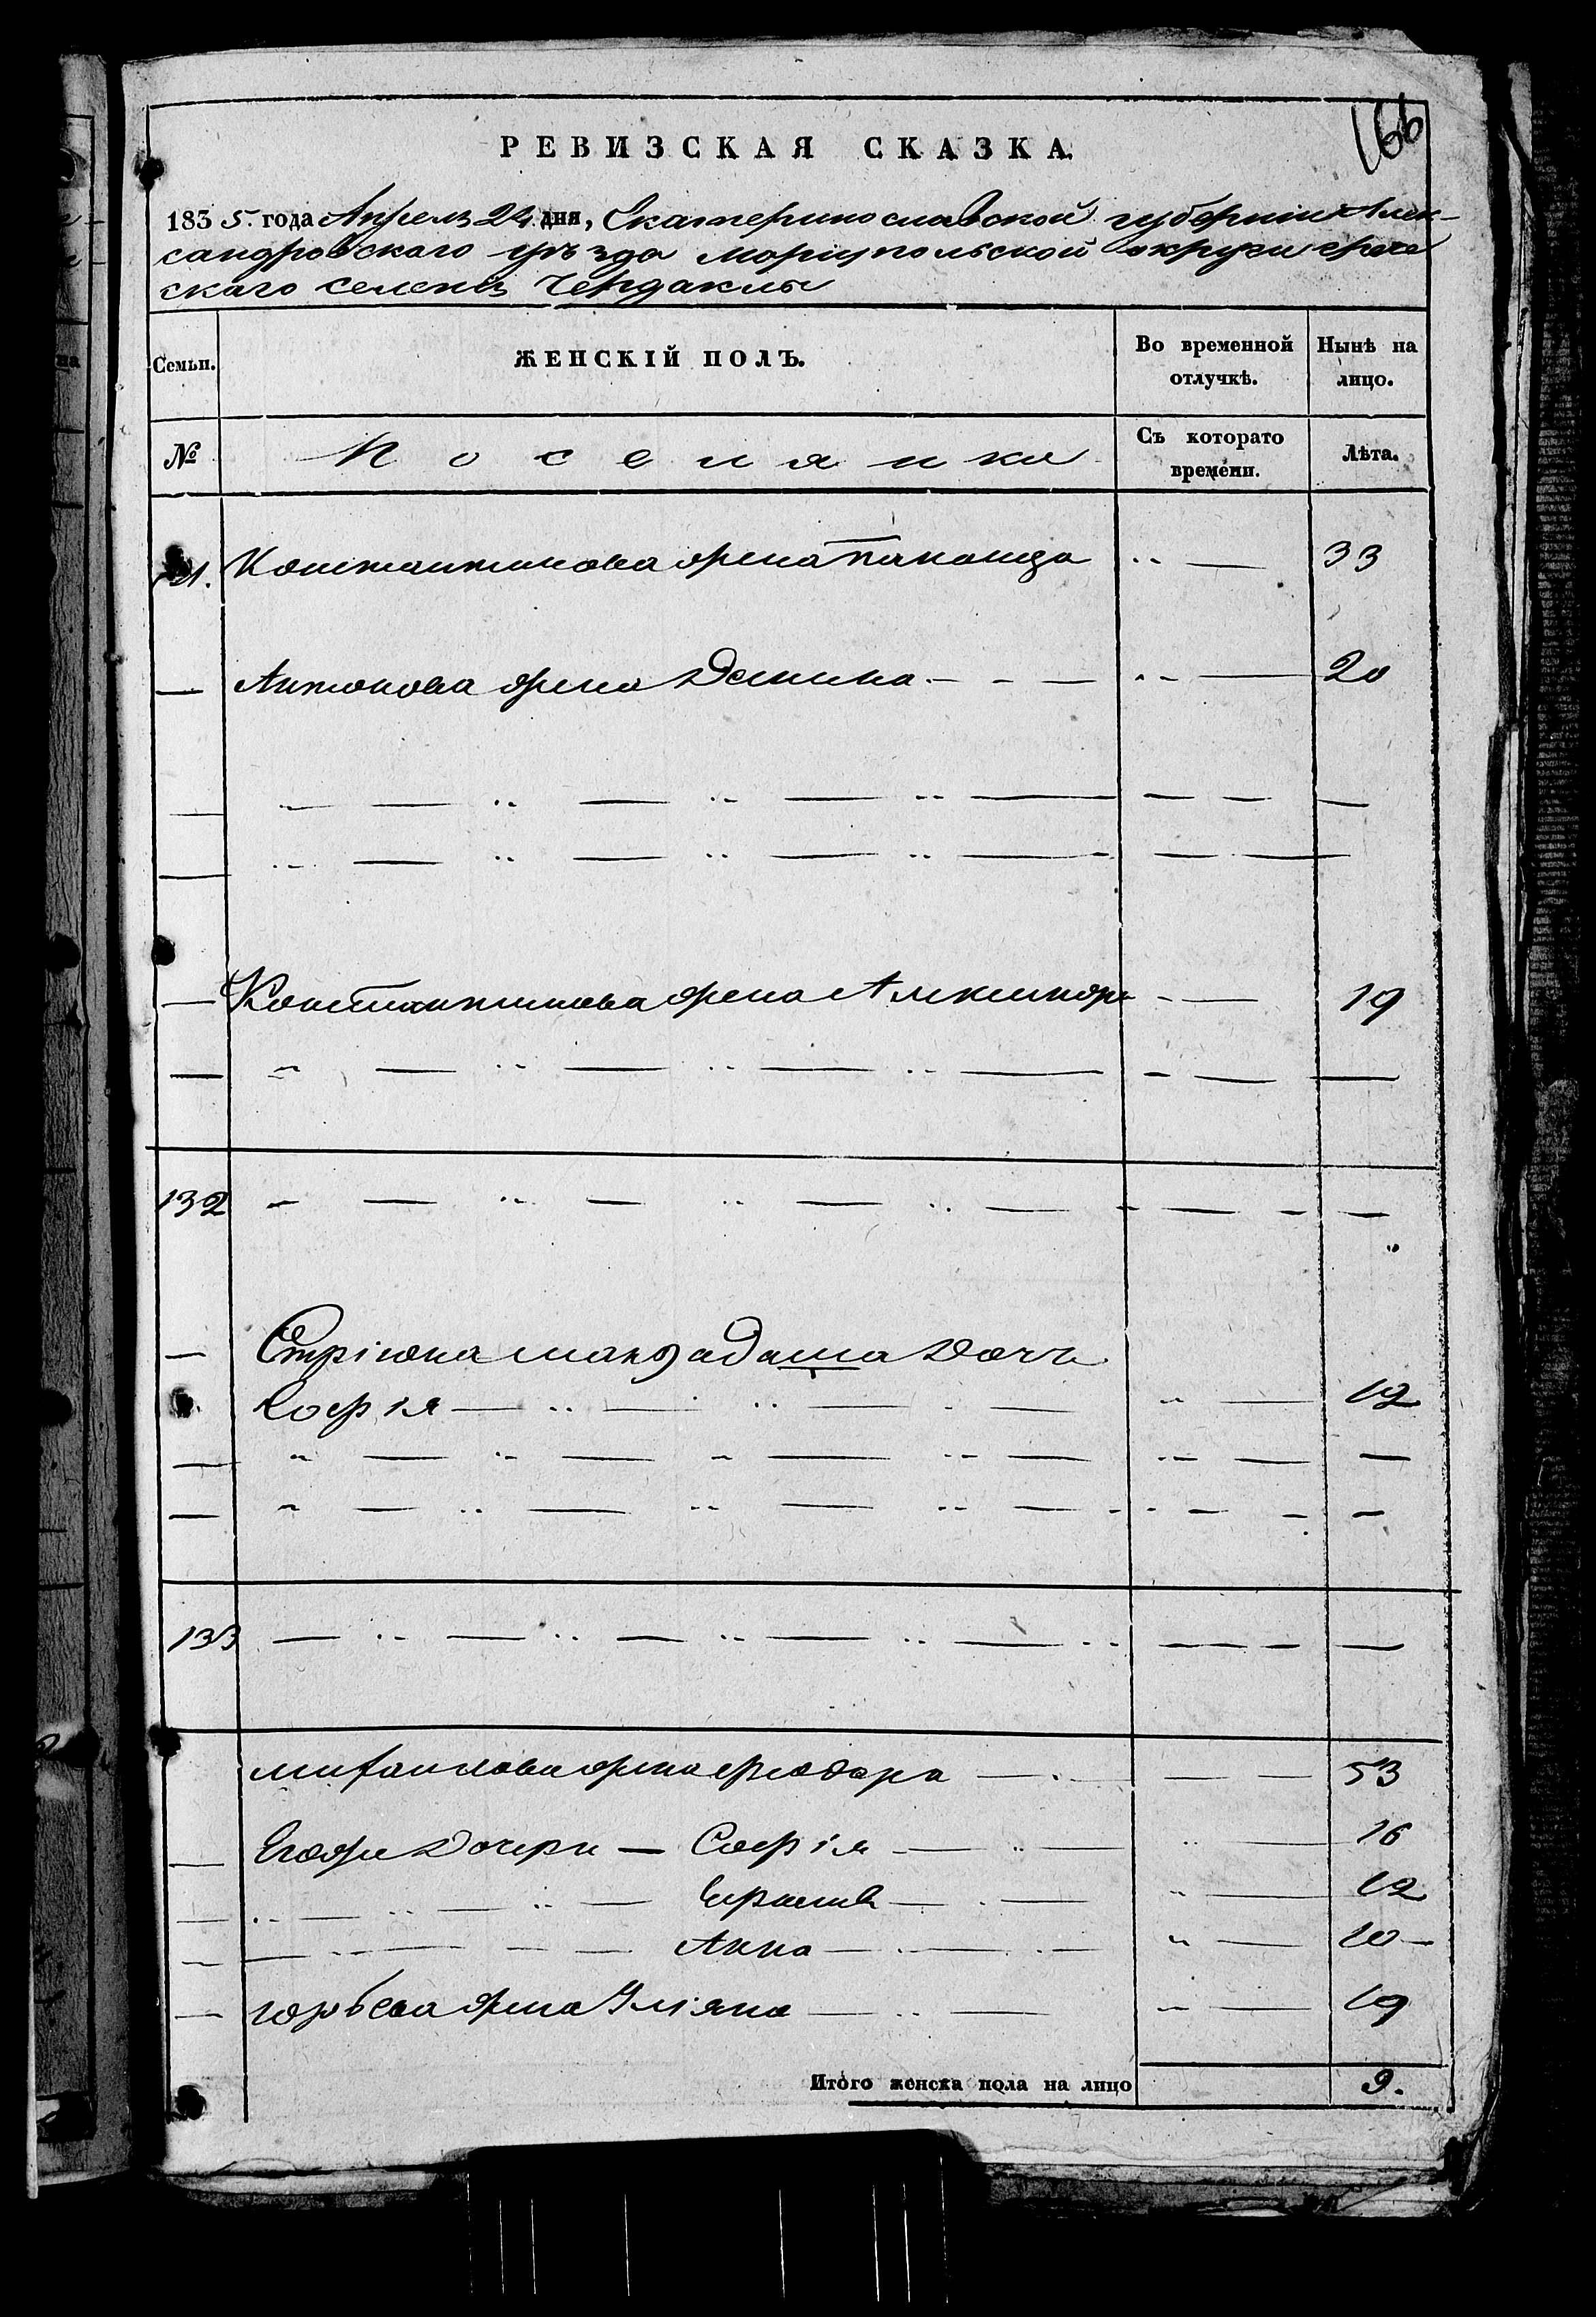 166
РЕВИЗСКАЯ СКАЗКА.
1835. года Апреля 24 дня, Екатеринославской губернии Алек-
сандровского уезда Мариупольской округи грече
скаго селения Чердаклы
Семьи. ЖЕНСКІЙ ПОЛЪ. Во временной отлучкѣ. Нынѣ на лицо.
№ Поселянки Съ которато времени. Лѣта.
Константинова жена 33
Антонова жена 20
Константинова жена 19
132
дочь
Софія 12
133
Михаилова жена Феодора 53
Егожъ дочери — Софія 16
12
Анна 10
Юрьева жена Уліяна 19
Итого женска пола на лицо 9.